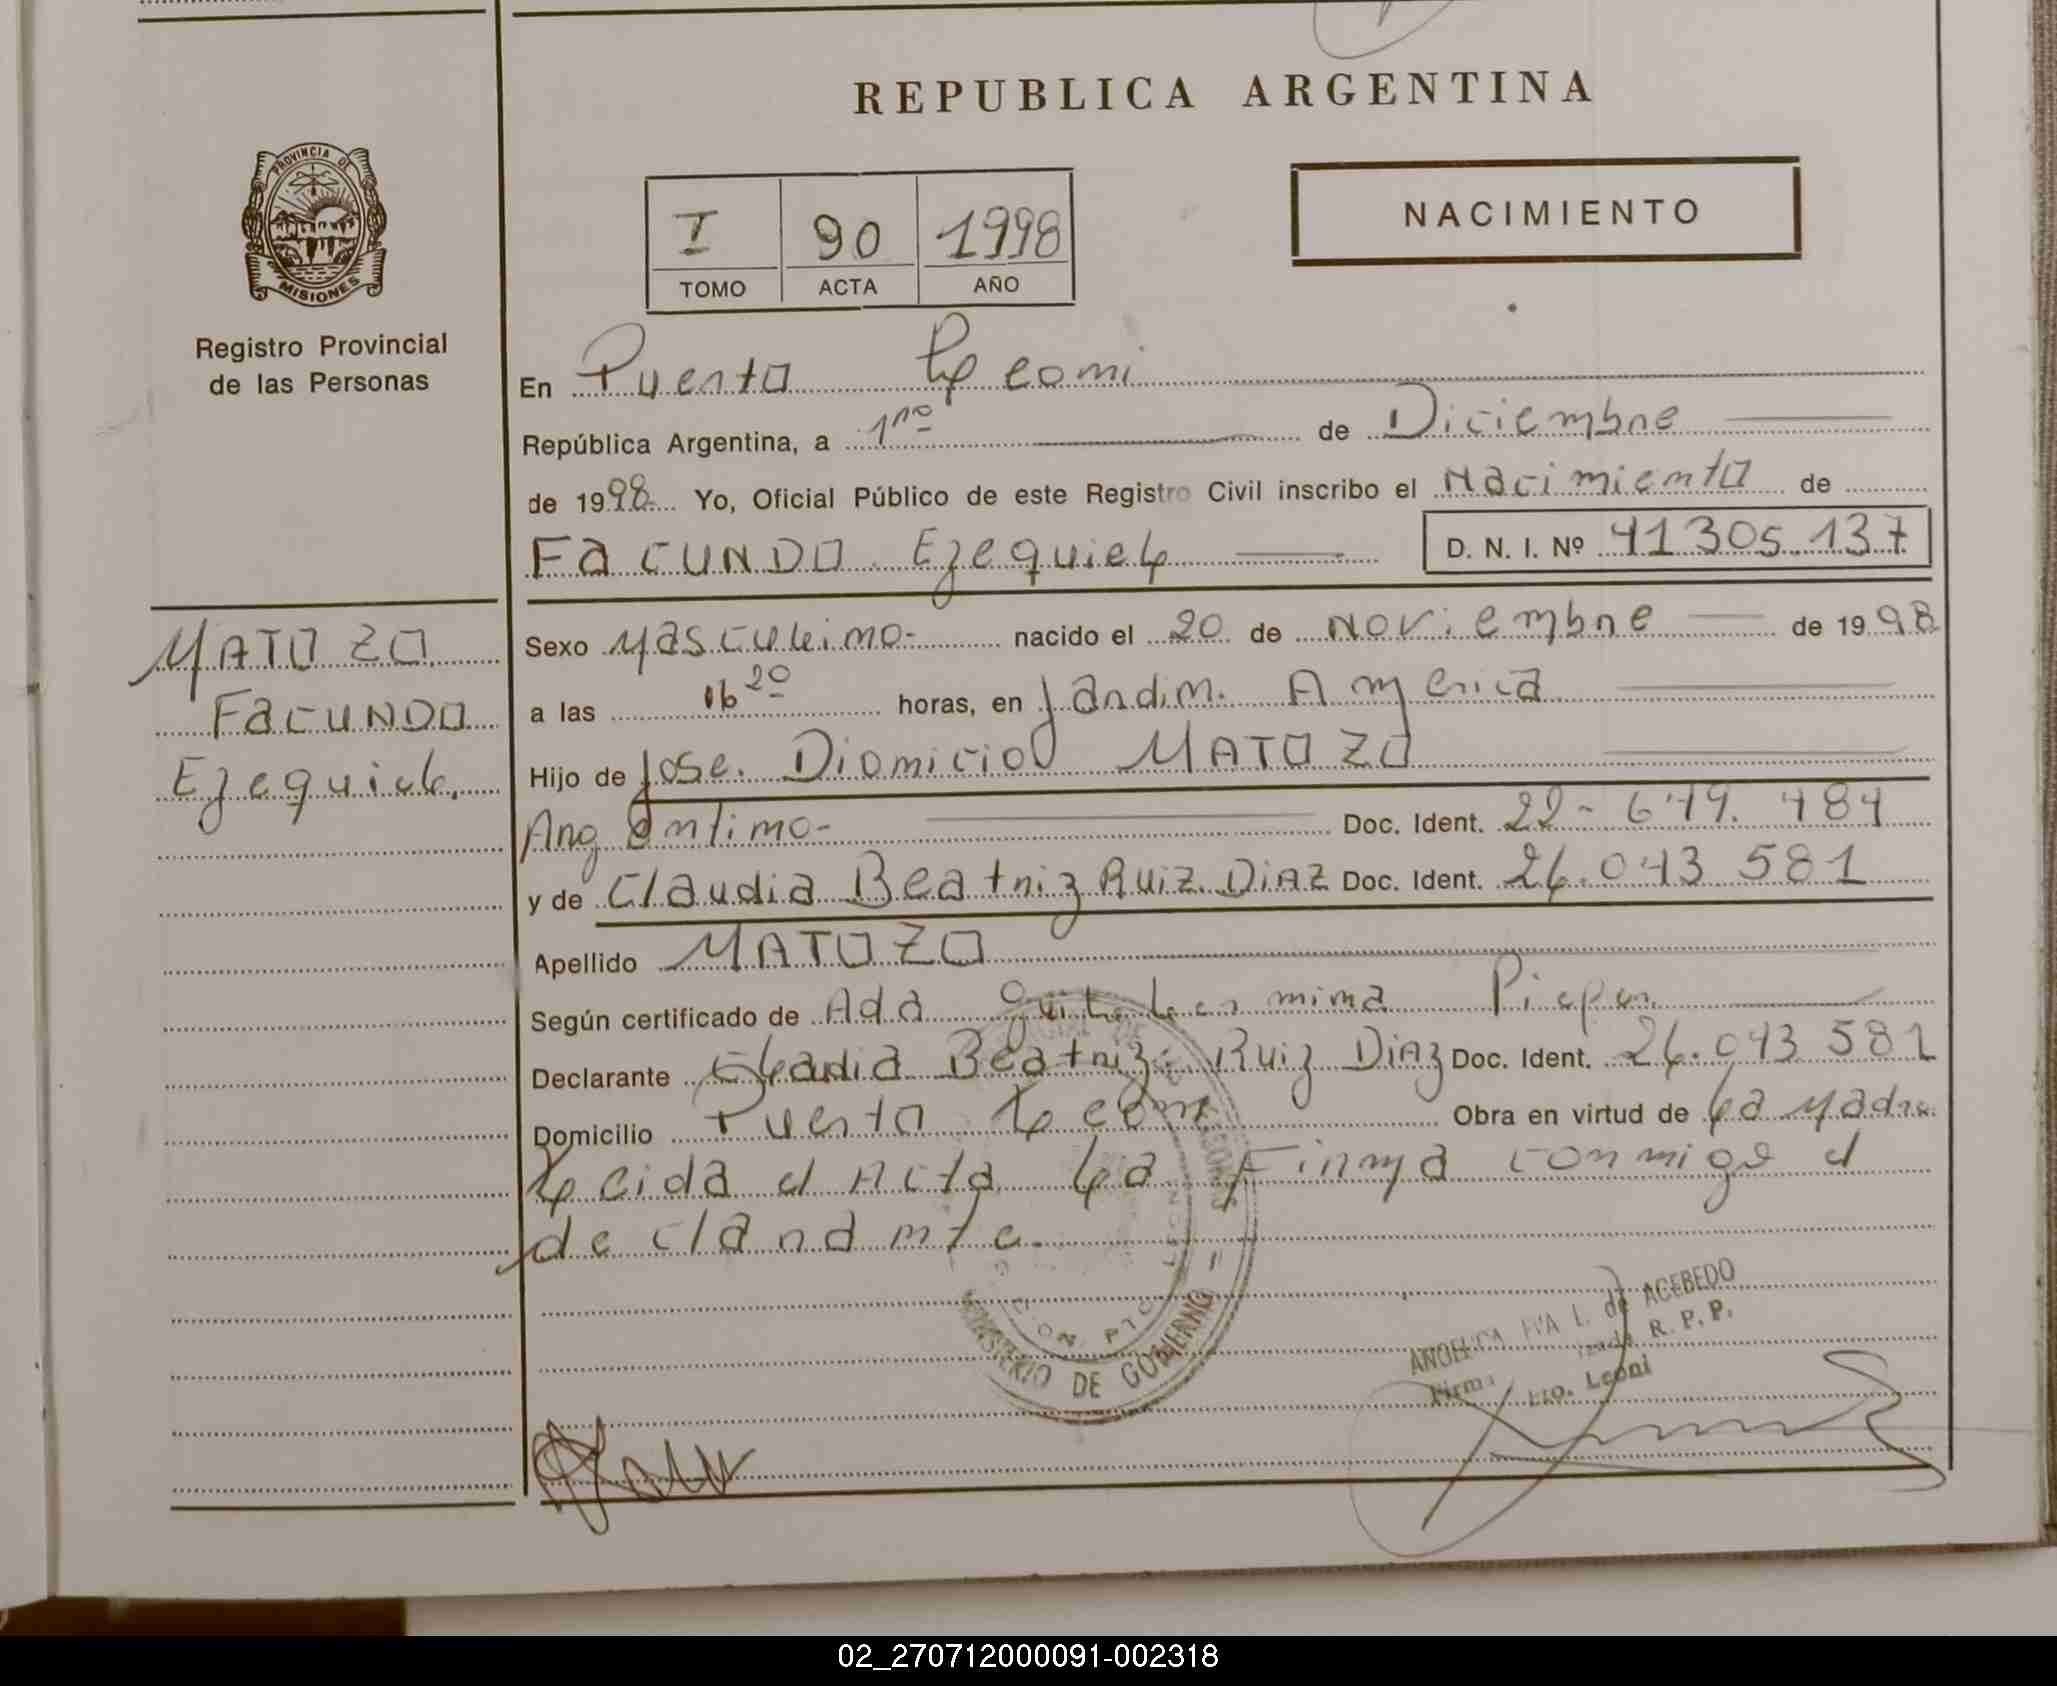 REPUBLICA ARGENTINA
PROVINCIA DE
MISIONES
Registro Provincial
de las Personas
I 90 1998
TOMO ACTA AÑO
NACIMIENTO
En Puerto Leoni
República Argentina, a 1ro de Diciembre
de 1998 Yo, Oficial Público de este Registro Civil inscribo el Nacimiento de
FACUNDO Ezequiel D. N. I. Nº 41305137
MATOZO
FACUNDO
Ezequiel.
Sexo Masculino- nacido el 20 de Noviembre de 1998
a las 16 20 horas, en Jardin America
Hijo de Jose Dionicio MATOZO
Argentino- Doc. Ident. 22-649.484
y de Claudia Beatriz Ruiz Diaz Doc. Ident. 26.043 581
Apellido MATOZO
Según certificado de Ada Guillermina Pieper
Declarante Claudia Beatriz Ruiz Diaz Doc. Ident. 26.043 581
Domicilio Puerto Leoni Obra en virtud de La Madre
Leida el Acta La Firma conmigo el
declarante.
MINISTERIO DE GOBIERNO
ANGELICA L. de ACEBEDO
R. P. P.
Pto. Leoni
02_270712000091-002318